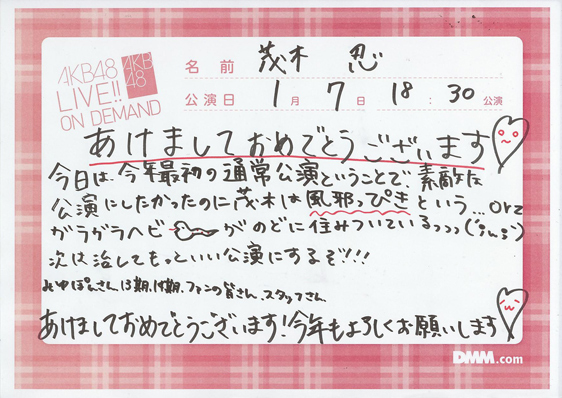 AKB48
LIVE!!
ON DEMAND
AKB
48
名前 茂木 忍
公演日 1月 7日 18:30 公演
あけましておめでとうございます
今日は、今年最初の通常公演ということで、素敵な
公演にしたかったのに茂木は風邪っぴきという…orz
ガラガラヘビ がのどに住みついているっっっ
次は治してもっといい公演にするぞ!!!
ぽんさん、13期、14期、ファンの皆さん、スタッフさん
あけましておめでとうございます!今年もよろしくお願いします
DMM.com